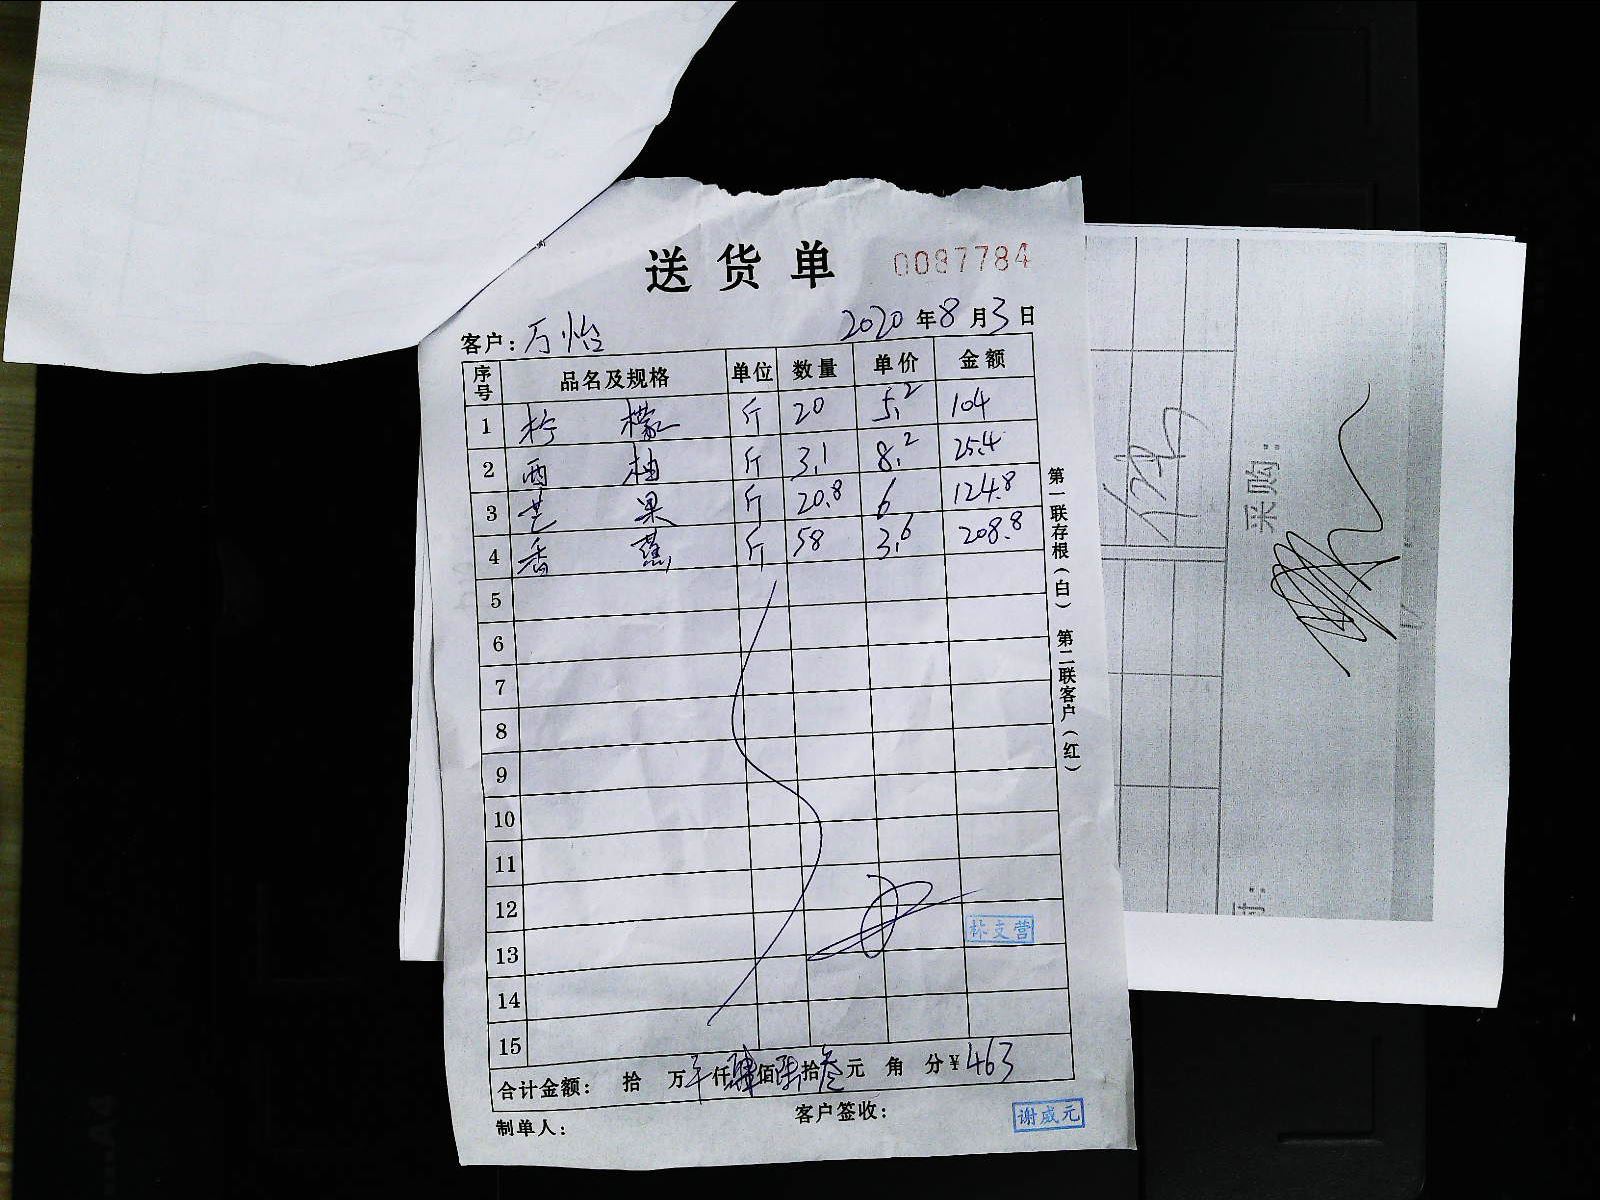 送货单 0087784
客户：万怡 2020年8月3日
序号 品名及规格 单位 数量 单价 金额
1 柠檬 斤 20 5.2 104
2 西柚 斤 3.1 8.2 25.4
3 芒果 斤 20.8 6 124.8
4 香蕉 斤 58 3.6 208.8
5
6
7
8
9
10
11
12
13
14
15
林支营
合计金额： 拾 万 仟肆佰陆拾叁元 角 分¥463
制单人： 客户签收： 谢威元
第一联存根（白） 第二联客户（红）
采购：